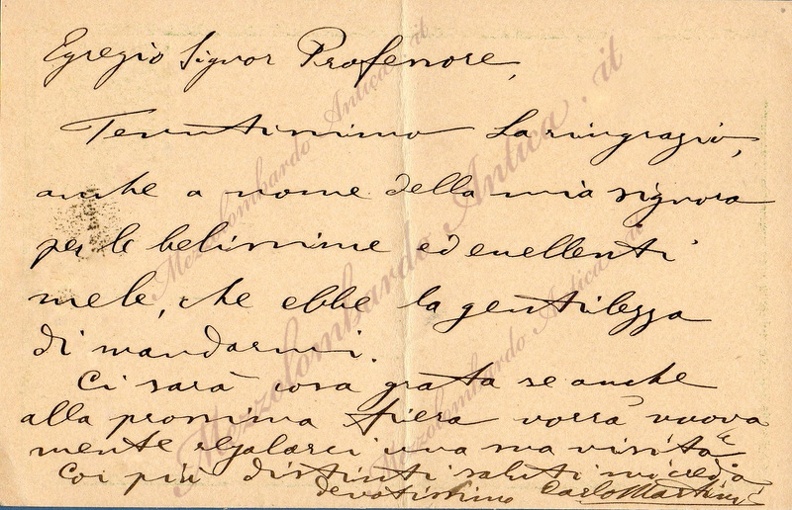 Egregio Signor Professore,
Tenutissimo La ringrazio,
anche a nome della mia signora
per le bellissime ed eccellenti
mele, che ebbe la gentilezza
di mandarmi.
Ci sarà cosa grata se anche
alla prossima fiera vorrà nuova
mente regalarci una sua visita
Coi più distinti saluti mi creda
devotissimo Carlo Martini
Mezzolombardo Antica.it
Mezzolombardo Antica.it
Mezzolombardo Antica.it